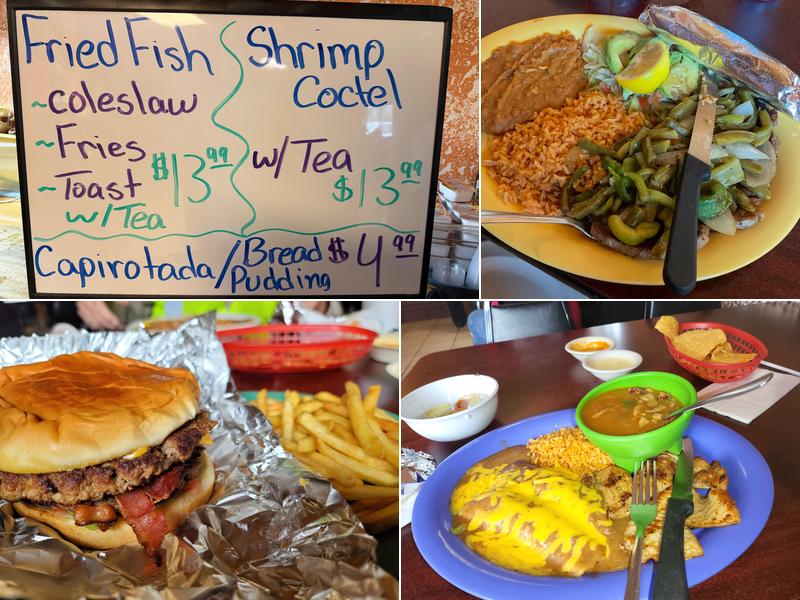 Fried Fish
~coleslaw
~Fries
~Toast
w/Tea
$13.99
Shrimp
Coctel
w/Tea
$13.99
Capirotada/Bread Pudding $4.99